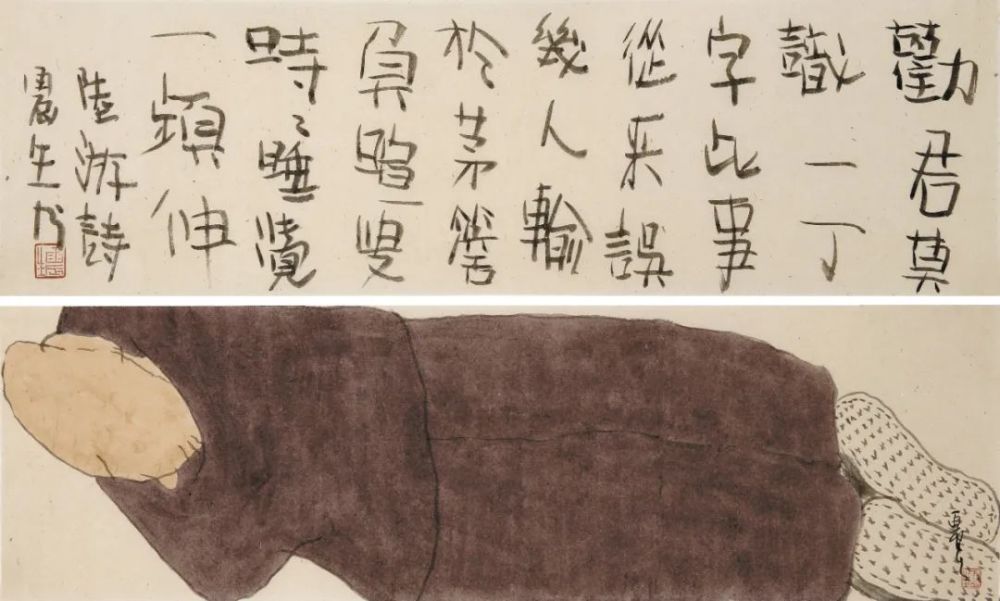 勸君莫
識一丁
字此事
從来誤
幾人輸
於茅簷
負暄叟
時〻睡覺
一頻伸
陸游詩
生书